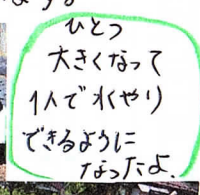 ひとつ
大きくなって
1人で水やり
できるように
なったよ.